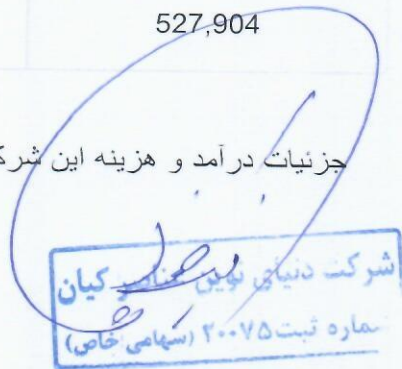 527,904
جزئیات درآمد و هزینه این شرک
شرکت دنیای نوین عناصر کیان
ماره ثبت ۲۰۰۷۵ (سهامی خاص)